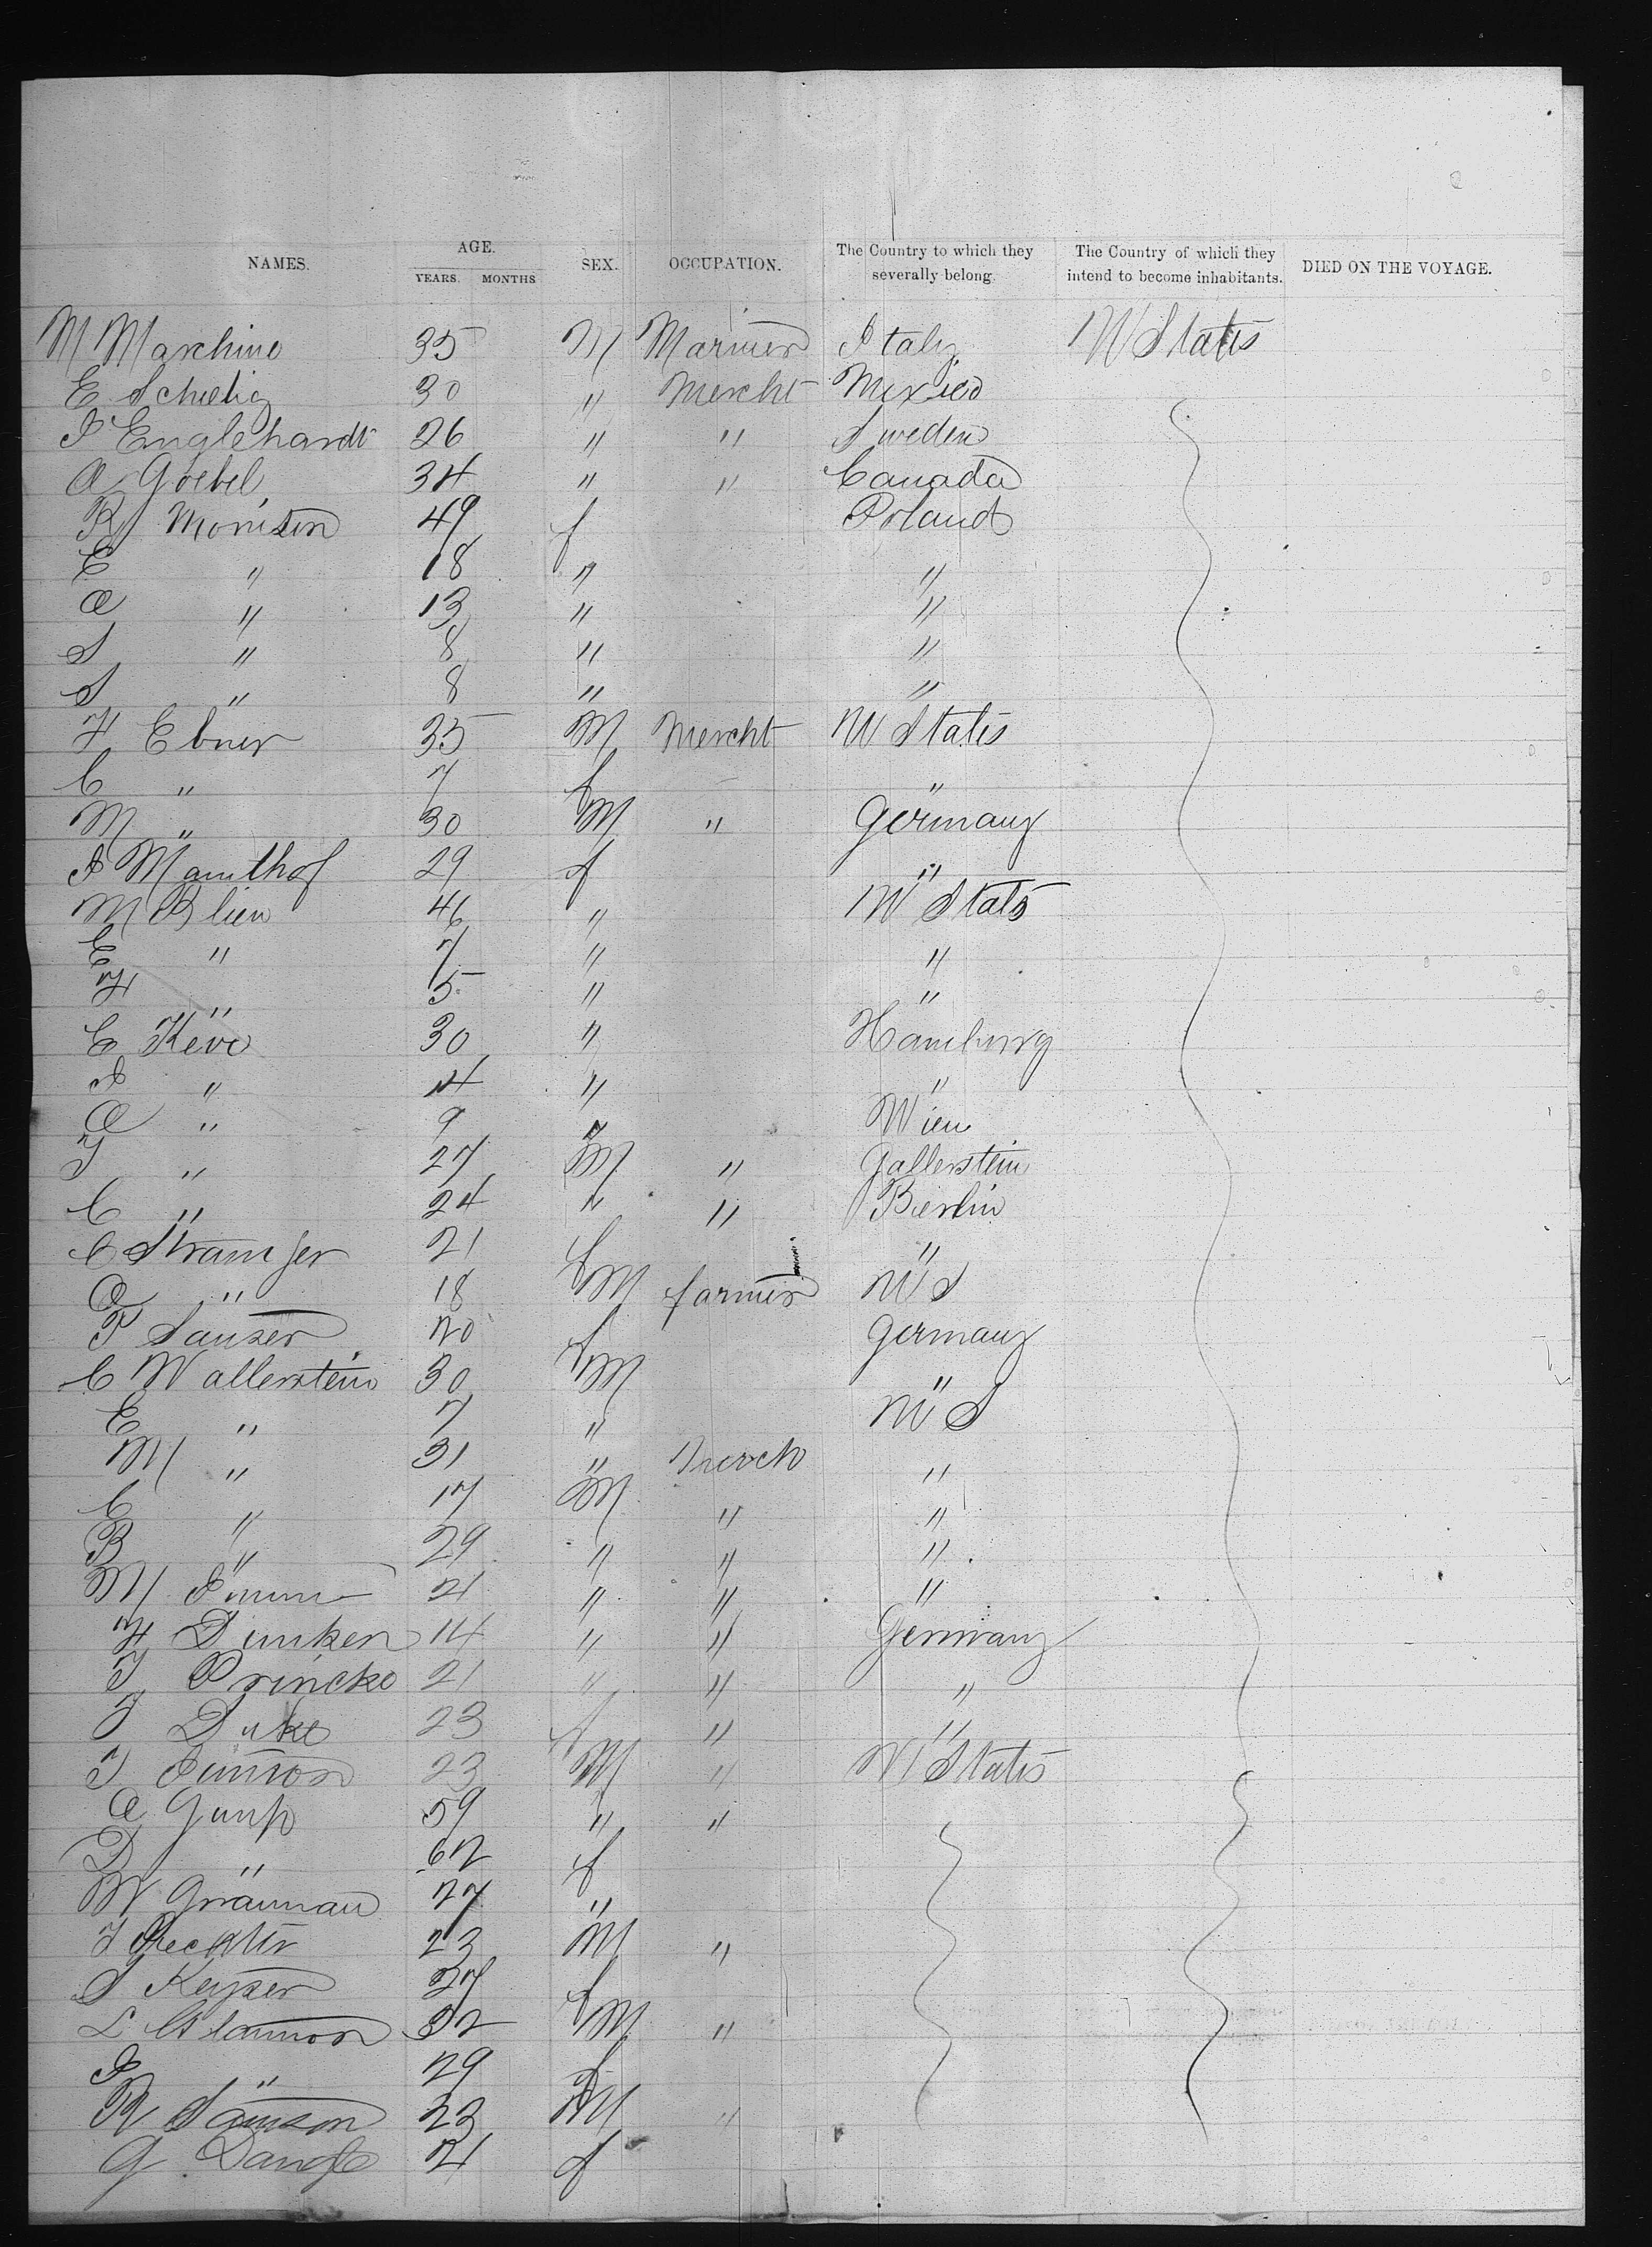 NAMES. AGE. YEARS. MONTHS SEX. OCCUPATION. The Country to which they severally belong. The Country of which they intend to become inhabitants. DIED ON THE VOYAGE.
M Marchino 35 M Mariner Italy U States
E Schielig 30 " Mercht Mexico
I Englehardt 26 " " Sweden
A Goebel 34 " " Canada
R Monisin 49 f Poland
E " 18 " "
A " 13 " "
S " 8 " "
S " 8 " "
H Ebner 35 M Mercht U States
C " 7 f "
M " 30 M " Germany
I Mamthof 29 f "
M Blien 46 " U States
E " 7 " "
H " 5 " "
C Keve 30 " Hamburg
I " 4 " "
A " 9 " Wien
J " 27 M " Gallerstein
C " 24 " " Berlin
C 21 f "
A " 18 M farmer U S
P Sauser 20 f Germany
C Wallerstein 30 M "
E " 7 " U S
M " 31 " Merch "
C " 17 M " "
B " 29 " " "
M 21 " " "
H Dunken 14 " " Germany
J Princke 21 " " "
J Duke 23 f " "
J Simson 23 M " U States
A Gump 59 " "
D " 62 f
W Grauman 27 "
J Reckter 23 M "
S Keyser 27 f
L 32 M "
I " 29 f
R Samson 23 M "
G 21 f